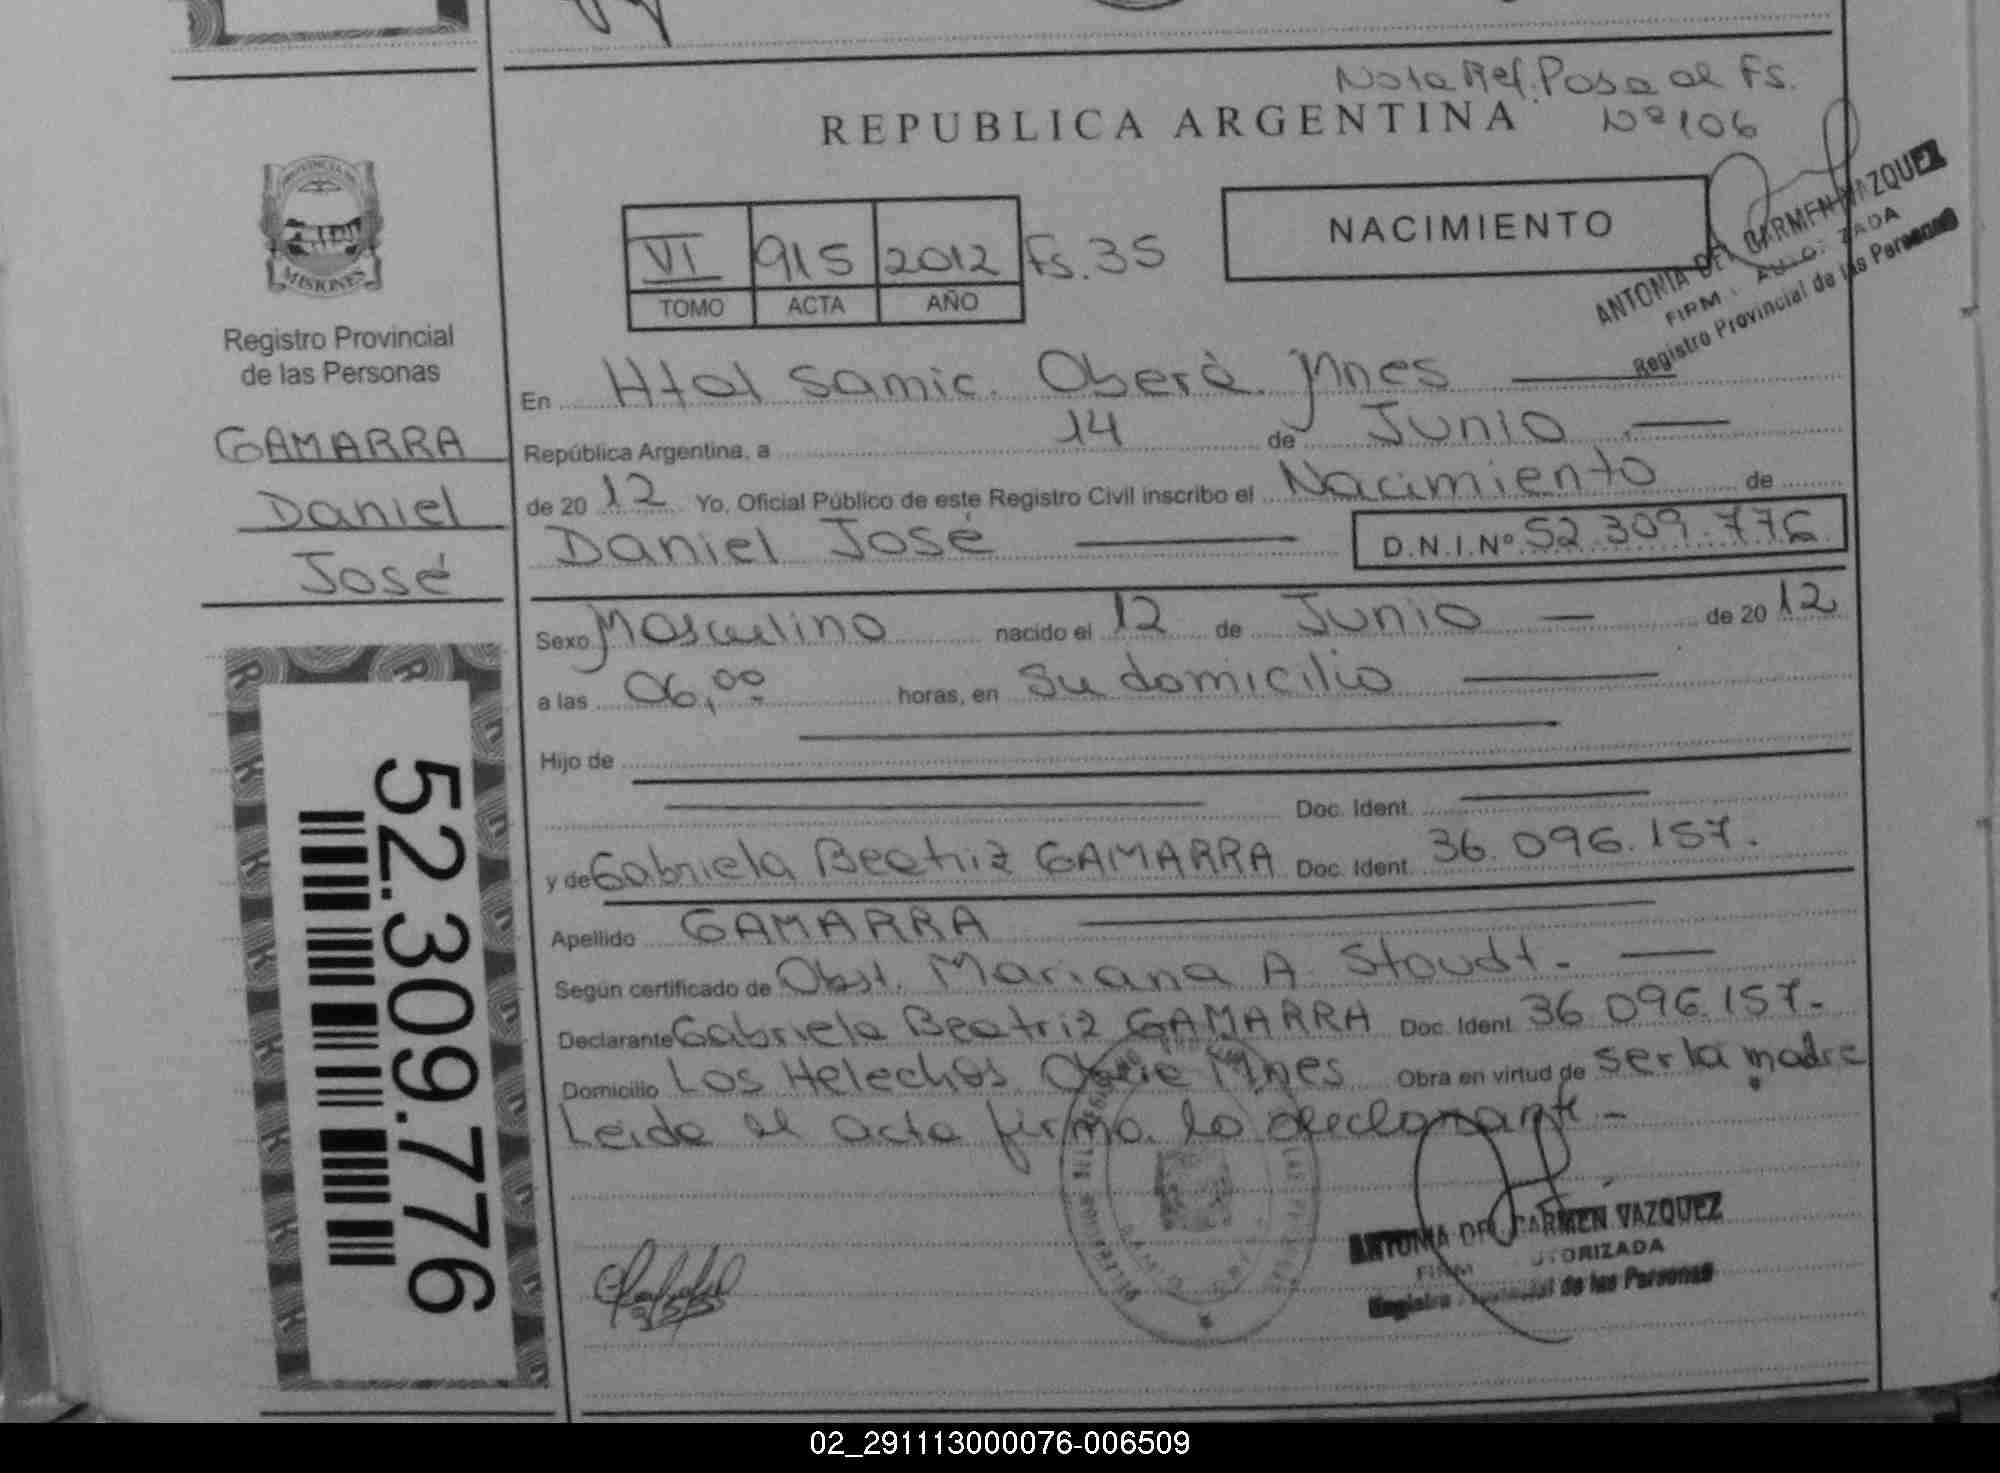 Nota Ref. Pasa al Fs.
Nº 106
REPUBLICA ARGENTINA
PROVINCIA DE
MISIONES
Registro Provincial
de las Personas
GAMARRA
Daniel
José
52.309.776
VI 915 2012 Fs. 35
TOMO ACTA AÑO
NACIMIENTO
ANTONIA DEL CARMEN VAZQUEZ
FIRM AUTORIZADA
Registro Provincial de las Personas
En Htal Samic. Oberá. Mnes
República Argentina, a 14 de Junio
de 20 12 Yo, Oficial Público de este Registro Civil inscribo el Nacimiento de
Daniel José D.N.I.Nº 52.309.776
Sexo Masculino nacido el 12 de Junio de 20 12
a las 06,00 horas, en Su domicilio
Hijo de
Doc. Ident.
y de Gabriela Beatriz GAMARRA Doc. Ident. 36.096.157.
Apellido GAMARRA
Según certificado de Obst. Mariana A. Stoudt.
Declarante Gabriela Beatriz GAMARRA Doc. Ident. 36.096.157.-
Domicilio Los Helechos Mnes Obra en virtud de ser la madre
Leida el acta firma la declarante-
ANTONIA DEL CARMEN VAZQUEZ
FIRM AUTORIZADA
Registro Provincial de las Personas
02_291113000076-006509